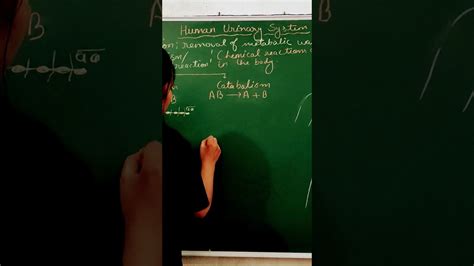 Human Urinary System
on; removal of metabolic wa
sm/ 'Chemical reactions
reaction' in the body
Catabolism
B AB → A + B
B
aa